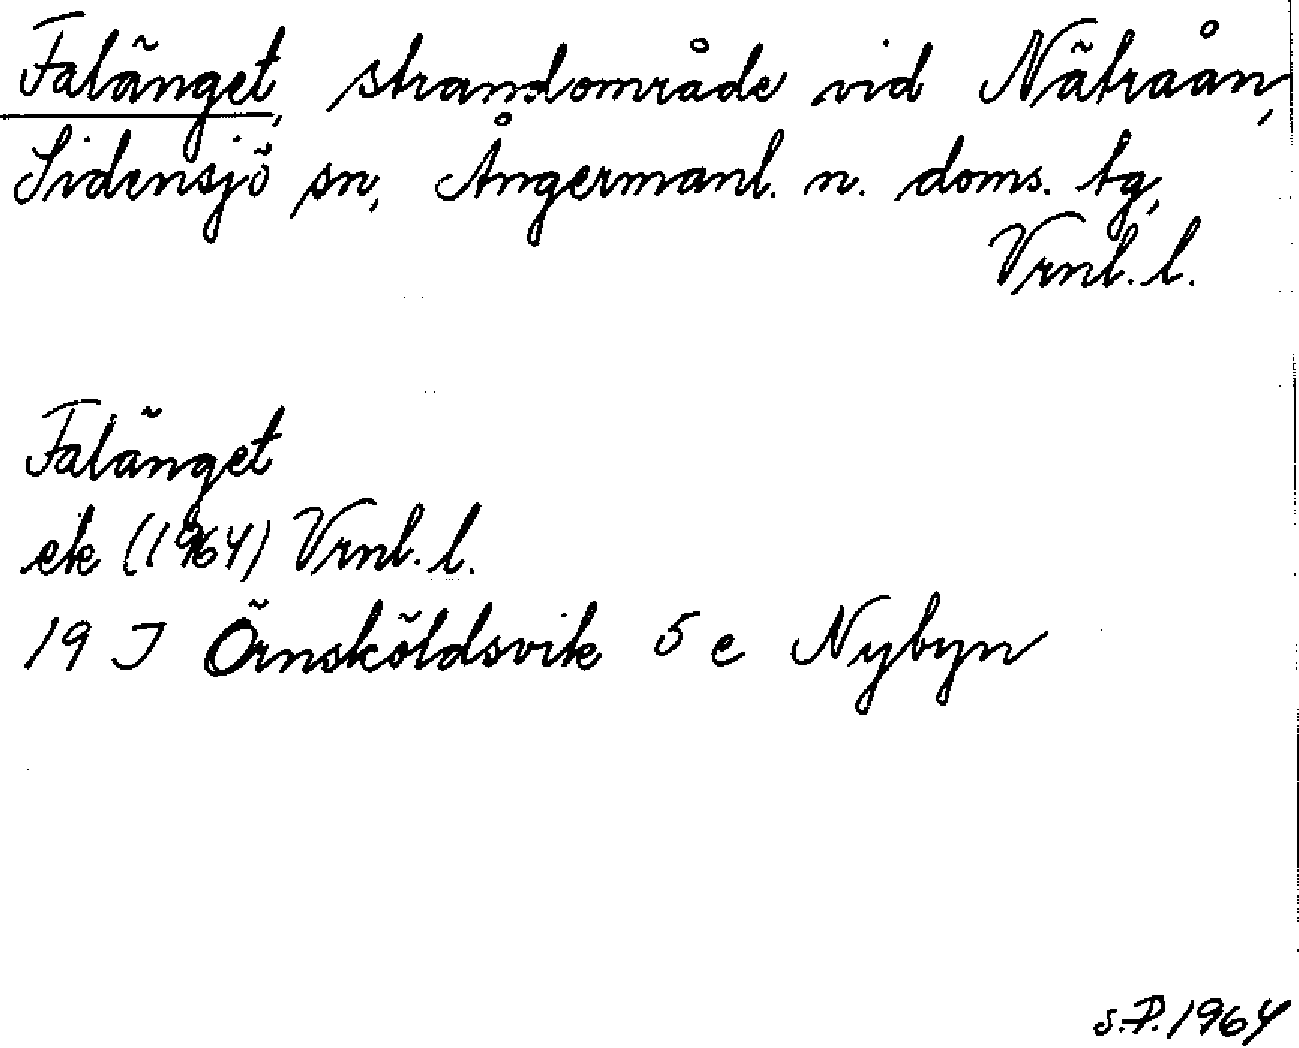 Falänget, strandområde vid Nätraån,
Sidensjö sn, Ångermanl. n. doms. tg,
Vrnl. l.
Falänget
ek (1964) Vrnl. l.
19 J Örnsköldsvik 5 e Nybyn
S.P. 1964